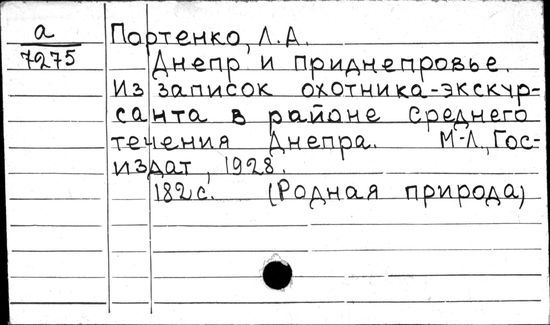 а
7275
Портенко, Л.А.
Днепр и приднепровье.
Из записок охотника-экскур-
санта в районе среднего
течения Днепра. М-Л., Гос-
издат, 1928.
182 с. (Родная природа)